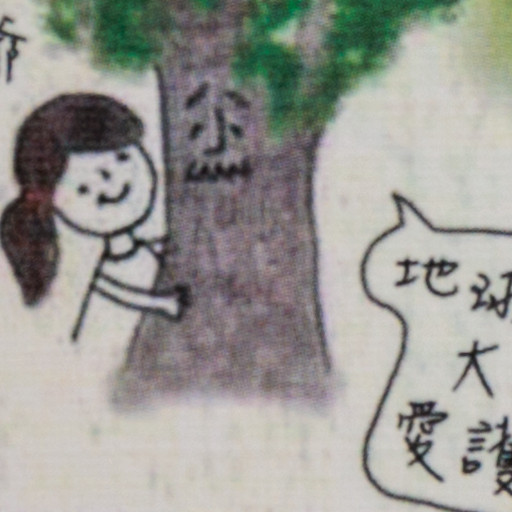 爺
地球
大
愛護